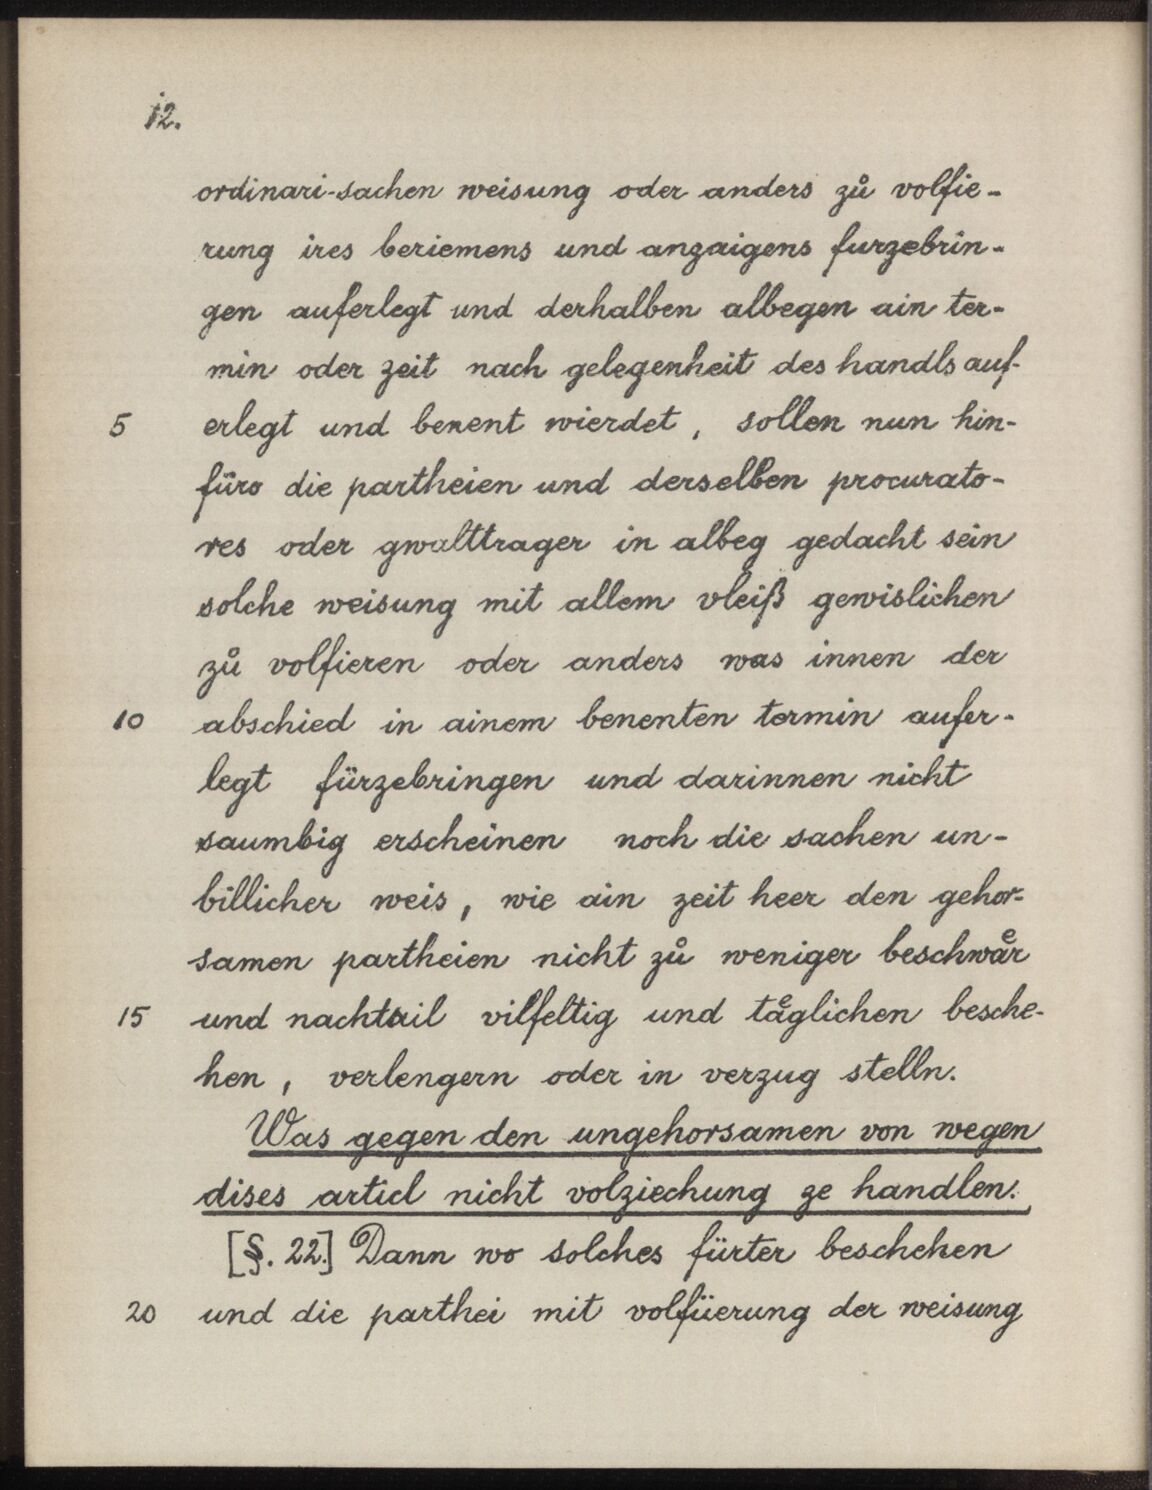 12.
ordinari-sachen weisung oder anders zů volfie-
rung ires beriemens und anzaigens furzebrin-
gen auferlegt und derhalben albegen ain ter-
min oder zeit nach gelegenheit des handls auf-
5 erlegt und benent wierdet, sollen nun hin-
füro die partheien und derselben procurato-
res oder gwalttrager in albeg gedacht sein
solche weisung mit allem vleiß gewislichen
zů volfieren oder anders was innen der
10 abschied in ainem benenten termin aufer-
legt fürzebringen und darinnen nicht
saumbig erscheinen noch die sachen un-
billicher weis, wie ain zeit heer den gehor-
samen partheien nicht zů weniger beschwaͤr
15 und nachtail vilfeltig und taͤglichen besche-
hen, verlengern oder in verzug stelln.
Was gegen den ungehorsamen von wegen
dises articl nicht volziechung ze handlen.
[§. 22.] Dann wo solches fürter beschehen
20 und die parthei mit volfüerung der weisung